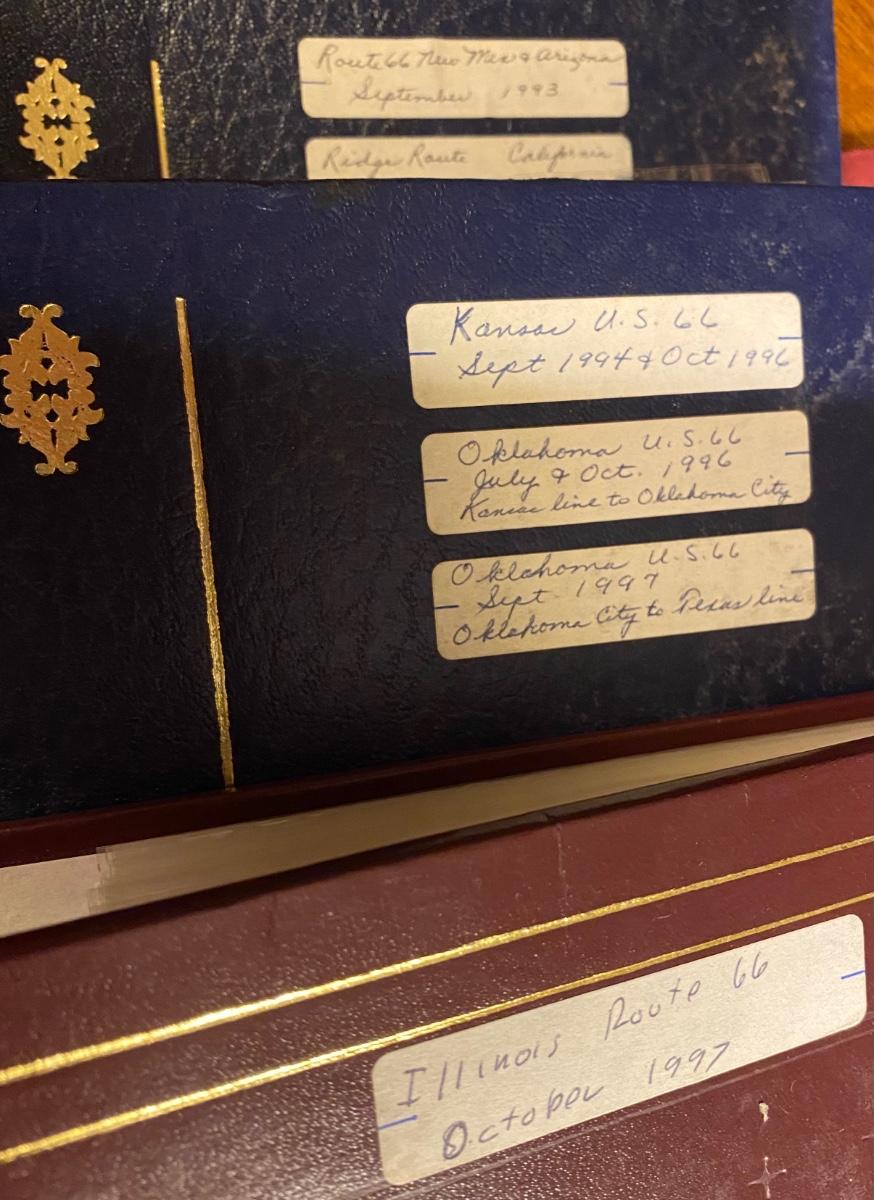 Route 66 New Mex & Arizona
September 1993
Ridge Route California
Kansas U.S. 66
Sept 1994 & Oct 1996
Oklahoma U.S. 66
July & Oct. 1996
Kansas line to Oklahoma City
Oklahoma U.S. 66
Sept. 1997
Oklahoma City to Texas line
Illinois Route 66
October 1997